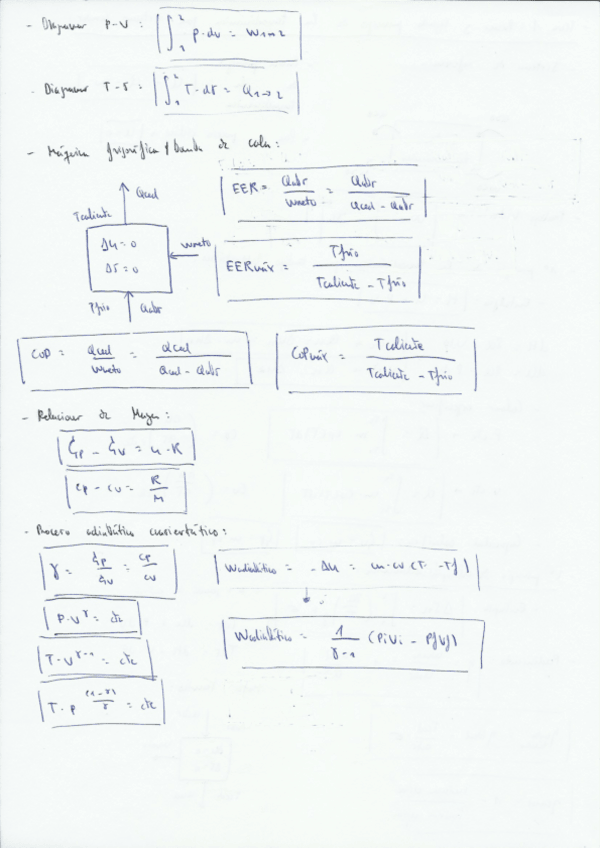 - Diagrama P-V: ∫₁² p·dv = W1→2
- Diagrama T-S: ∫₁² T·dS = Q1→2
- Máquina frigorífica / bomba de calor:
Qced
Tcaliente
ΔU=0
ΔS=0
Wneto
Tfrío Qabr
EER = Qabr/Wneto = Qabr/(Qced - Qabr)
EERmáx = Tfrío/(Tcaliente - Tfrío)
COP = Qced/Wneto = Qced/(Qced - Qabr)
COPmáx = Tcaliente/(Tcaliente - Tfrío)
- Relaciones de Mayer:
Cp - Cv = n·R
cp - cv = R/M
- Proceso adiabático cuasiestático:
γ = Cp/Cv = cp/cv
P·V^γ = cte
T·V^(γ-1) = cte
T·P^((1-γ)/γ) = cte
Wadiabático = -ΔU = m·cv (Ti - Tf)
Wadiabático = 1/(γ-1) (PiVi - PfVf)